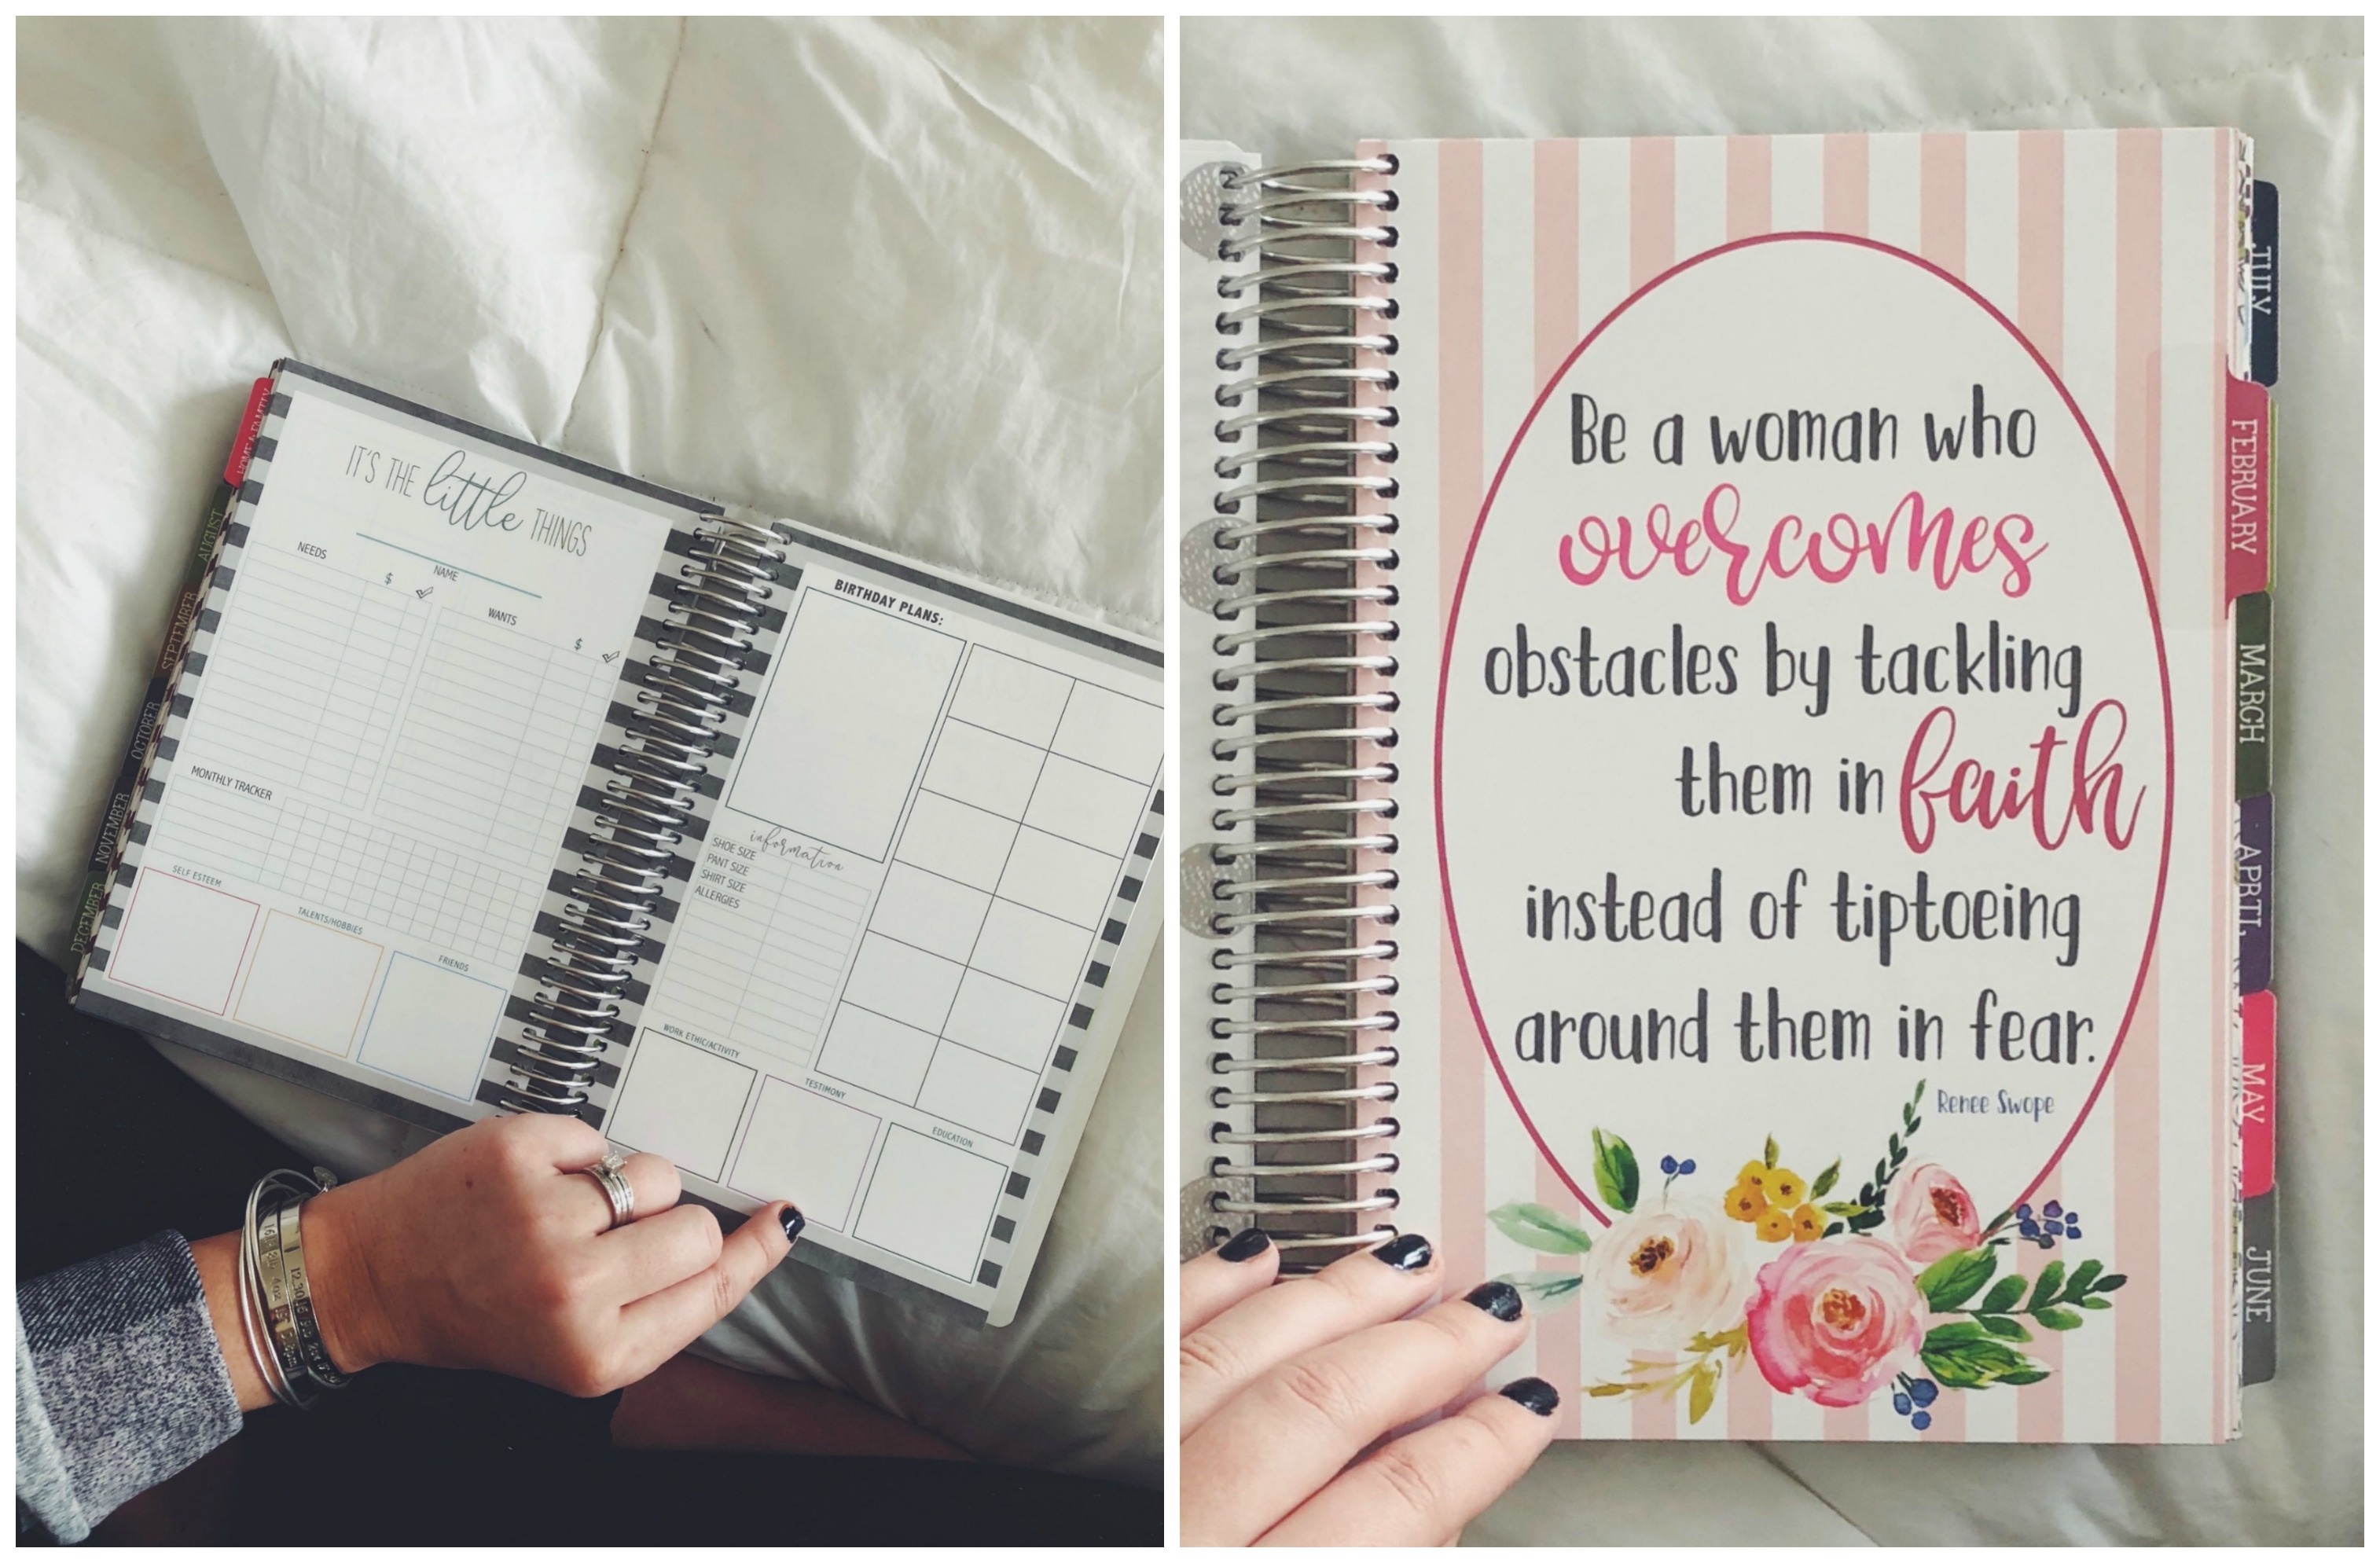 HOME & FAMILY
AUGUST
SEPTEMBER
OCTOBER
NOVEMBER
DECEMBER
IT'S THE little THINGS
NAME
NEEDS
$
WANTS
$
MONTHLY TRACKER
SELF ESTEEM
TALENTS/HOBBIES
FRIENDS
BIRTHDAY PLANS:
information
SHOE SIZE
PANT SIZE
SHIRT SIZE
ALLERGIES
WORK ETHIC/ACTIVITY
TESTIMONY
EDUCATION
Be a woman who
overcomes
obstacles by tackling
them in faith
instead of tiptoeing
around them in fear.
Renee Swope
JULY
FEBRUARY
MARCH
APRIL
MAY
JUNE